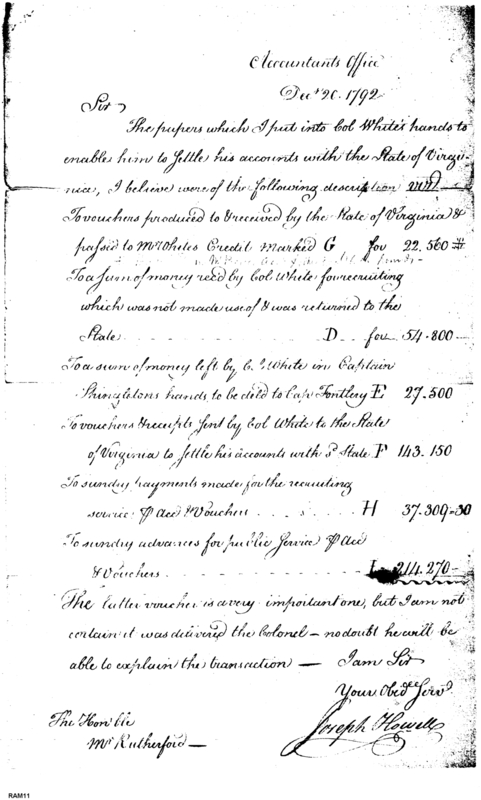 Accountants Office
Decr 20. 1792
Sir
The papers which I put into Col White's hands to
enable him to Settle his accounts with the State of Virgi-
nia, I believe were of the following description vizt
To vouchers produced to & received by the State of Virginia &
passed to Mr Whites Credit Marked G for 22.560
To a Sum of money recd by Col White for recruiting
which was not made use of & was returned to the
State D for 54.800
To a sum of money left by Col White in Captain
Shingletons hands, to be deld to Cap E 27.500
To vouchers & receipts Sent by Col White to the State
of Virginia to Settle his accounts with sd State F 143.150
To sundry payments made for the recruiting
service Acc & Voucher H 37.309-30
To sundry advances for public Service Acc
& Vouchers I 214.270
The latter voucher is a very important one, but I am not
certain it was delivered the Colonel – no doubt he will be
able to explain the transaction — I am Sir
Your Obed Serv
The Honble
Mr Rutherford —
Joseph Howell
RAM11